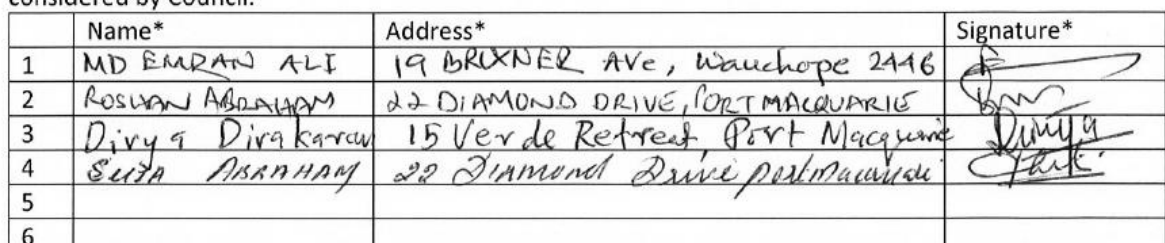 considered by Council.
Name* Address* Signature*
1 MD EMRAN ALI 19 BRUXNER AVe, Wauchope 2446
2 ROSHAN ABRAHAM 22 DIAMOND DRIVE, PORT MACQUARIE
3 Divya 15 Verde Retreat, Port Macquarie Divya
4 ABRAHAM 22 Diamond Drive port macquarie
5
6